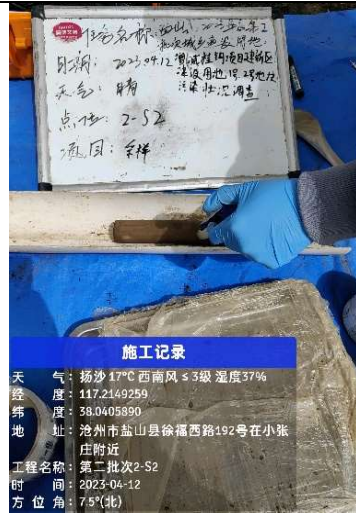 日期: 2023.04.12
天气: 晴
点位: 2-S2
项目: 采样
污染状况调查
施工记录
天 气: 扬沙 17℃ 西南风 ≤ 3级 湿度37%
经 度: 117.2149259
纬 度: 38.0405890
地 址: 沧州市盐山县徐福西路192号在小张
庄附近
工程名称: 第二批次2-S2
时 间: 2023-04-12
方 位 角: 7.5°(北)